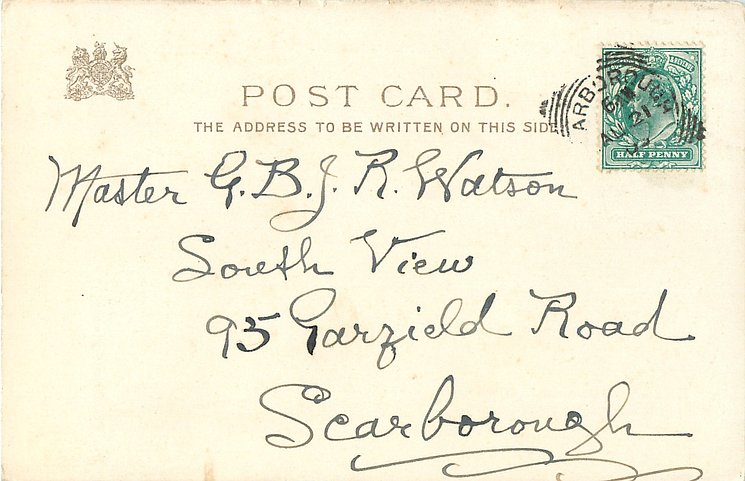 POST CARD.
THE ADDRESS TO BE WRITTEN ON THIS SIDE
ARBOROUGH
6 PM
21
HALF PENNY
Master G. B. J. R. Watson
South View
95 Garfield Road
Scarborough